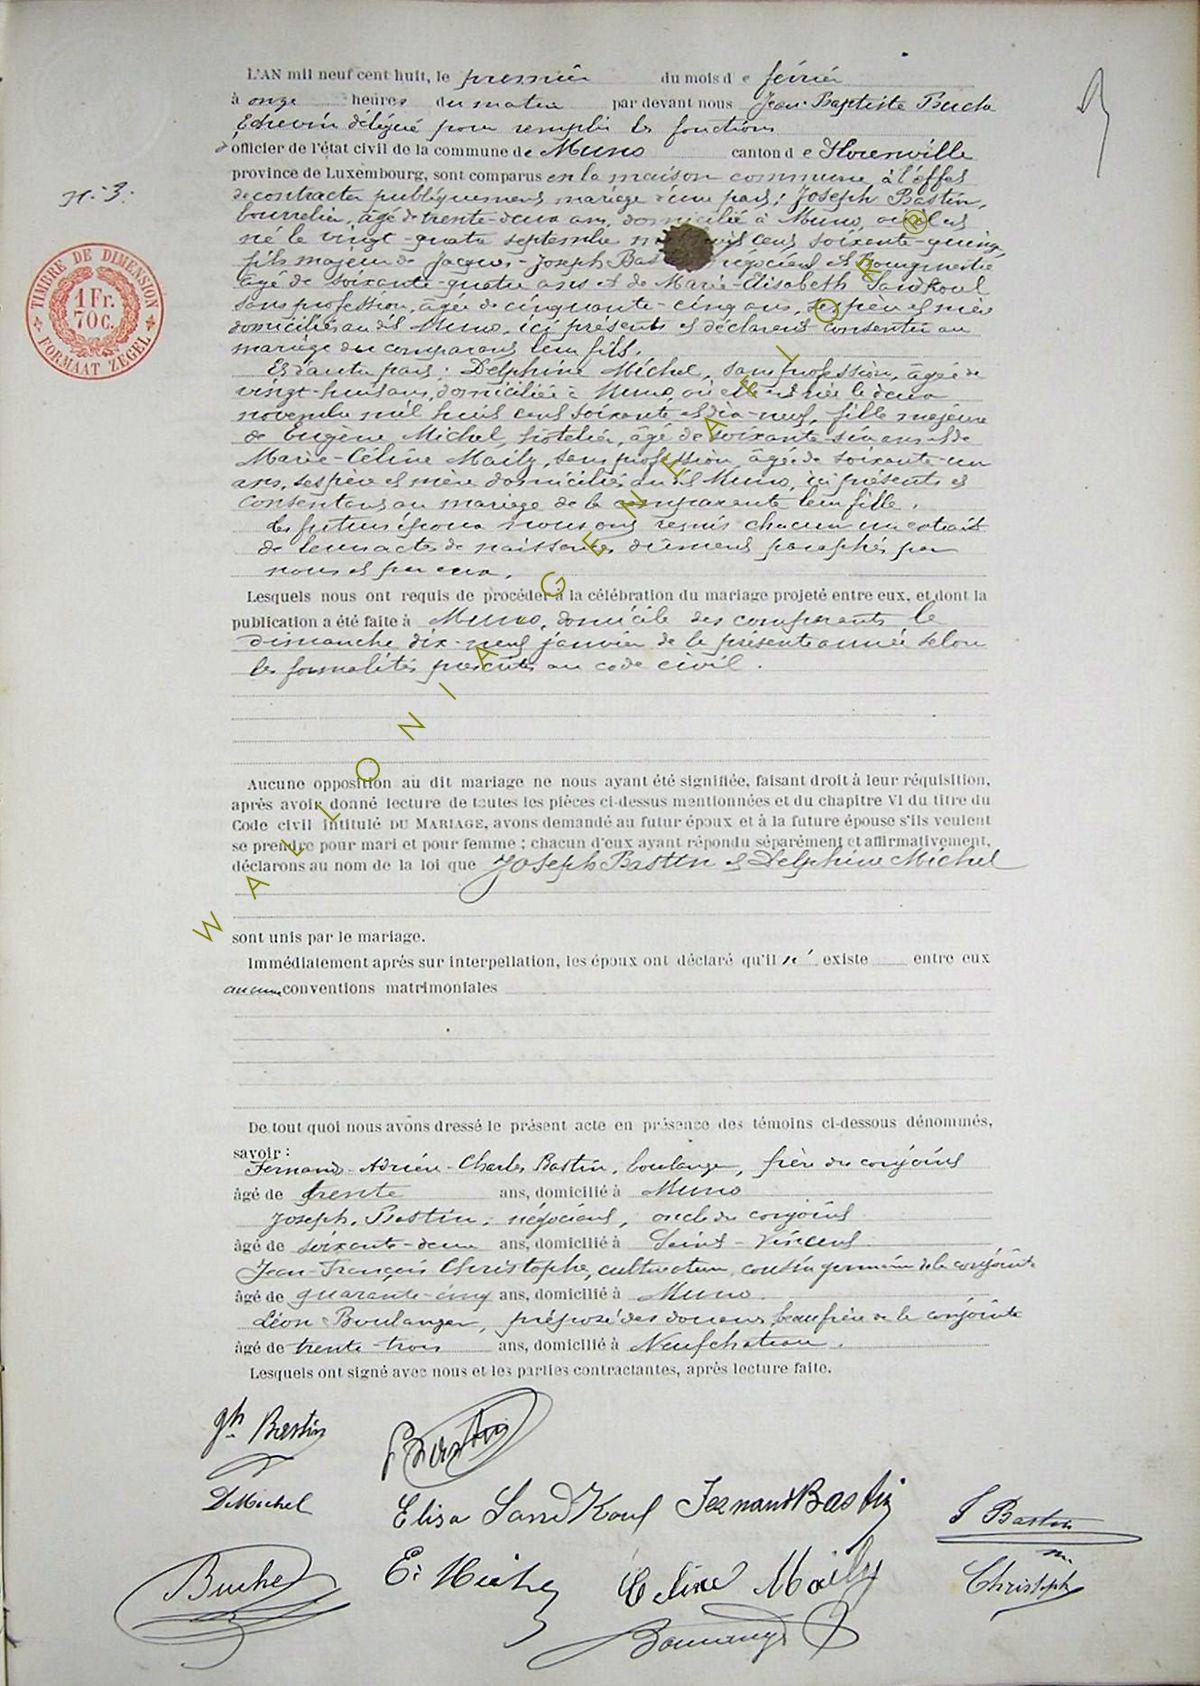 L'AN mil neuf cent huit, le premier du mois d e février
à onze heures du matin par devant nous Jean-Baptiste Buche
Echevin délégué pour remplir les fonctions
d'officier de l'état civil de la commune de Muno canton d e Florenville
province de Luxembourg, sont comparus en la maison commune à l'effet
de contracter publiquement mariage d'une part: Joseph Bastin,
bourrelier, âgé de trente-deux ans, domicilié à Muno, où il est
né le vingt-quatre septembre mil huit cent soixante-quinze
fils majeur de Jacques-Joseph Bastin négociant et bourgmestre
âgé de soixante-quatre ans et de Marie-Elisabeth Sandkoul
sans profession, âgée de cinquante-cinq ans, ses père et mère
domiciliés au dit Muno, ici présents et déclarent consentir au
mariage du comparant leur fils.
Et d'autre part: Delphine Michel, sans profession, âgée de
vingt-huit ans, domiciliée à Muno, où elle est née le deux
novembre mil huit cent soixante et dix-neuf, fille majeure
de Eugène Michel, hôtelier, âgé de soixante-six ans et de
Marie-Céline Maily, sans profession, âgée de soixante-un
ans, ses père et mère domiciliés au dit Muno, ici présents et
consentant au mariage de la comparante leur fille.
Les futurs époux nous ont remis chacun un extrait
de leur acte de naissance dûment paraphés par
nous et par eux.
Lesquels nous ont requis de procéder à la célébration du mariage projeté entre eux, et dont la
publication a été faite à Muno, domicile des comparents le
dimanche dix-neuf janvier de la présente année selon
les formalités prescrites au code civil.
Aucune opposition au dit mariage ne nous ayant été signifiée, faisant droit à leur réquisition,
après avoir donné lecture de toutes les pièces ci-dessus mentionnées et du chapitre VI du titre du
Code civil intitulé DU MARIAGE, avons demandé au futur époux et à la future épouse s'ils veulent
se prendre pour mari et pour femme ; chacun d'eux ayant répondu séparément et affirmativement,
déclarons au nom de la loi que Joseph Bastin et Delphine Michel
sont unis par le mariage.
Immédiatement après sur interpellation, les époux ont déclaré qu'il n' existe entre eux
aucune conventions matrimoniales
De tout quoi nous avons dressé le présent acte en présence des témoins ci-dessous dénommés,
savoir :
Fernand-Adrien-Charles Bastin, boulanger, frère du conjoint
âgé de trente ans, domicilié à Muno
Joseph Bastin, négociant, oncle du conjoint
âgé de soixante-deux ans, domicilié à Saint-Vincent
Jean-François Christophe, cultivateur, cousin germain de la conjointe
âgé de quarante-cinq ans, domicilié à Muno.
Léon Boulanger, préposé des douanes, beau frère de la conjointe
âgé de trente-trois ans, domicilié à Neufchateau.
Lesquels ont signé avec nous et les parties contractantes, après lecture faite.
Jph Bastin
J Bastin
D Michel
Elisa SandKoul
Fernand Bastin
J Bastin
Buche
E. Michel
Céline Maily
Christophe
N°-3.
TIMBRE DE DIMENSION
1 Fr.
70 c.
FORMAAT ZEGEL
WALLONIA GENEALOR®